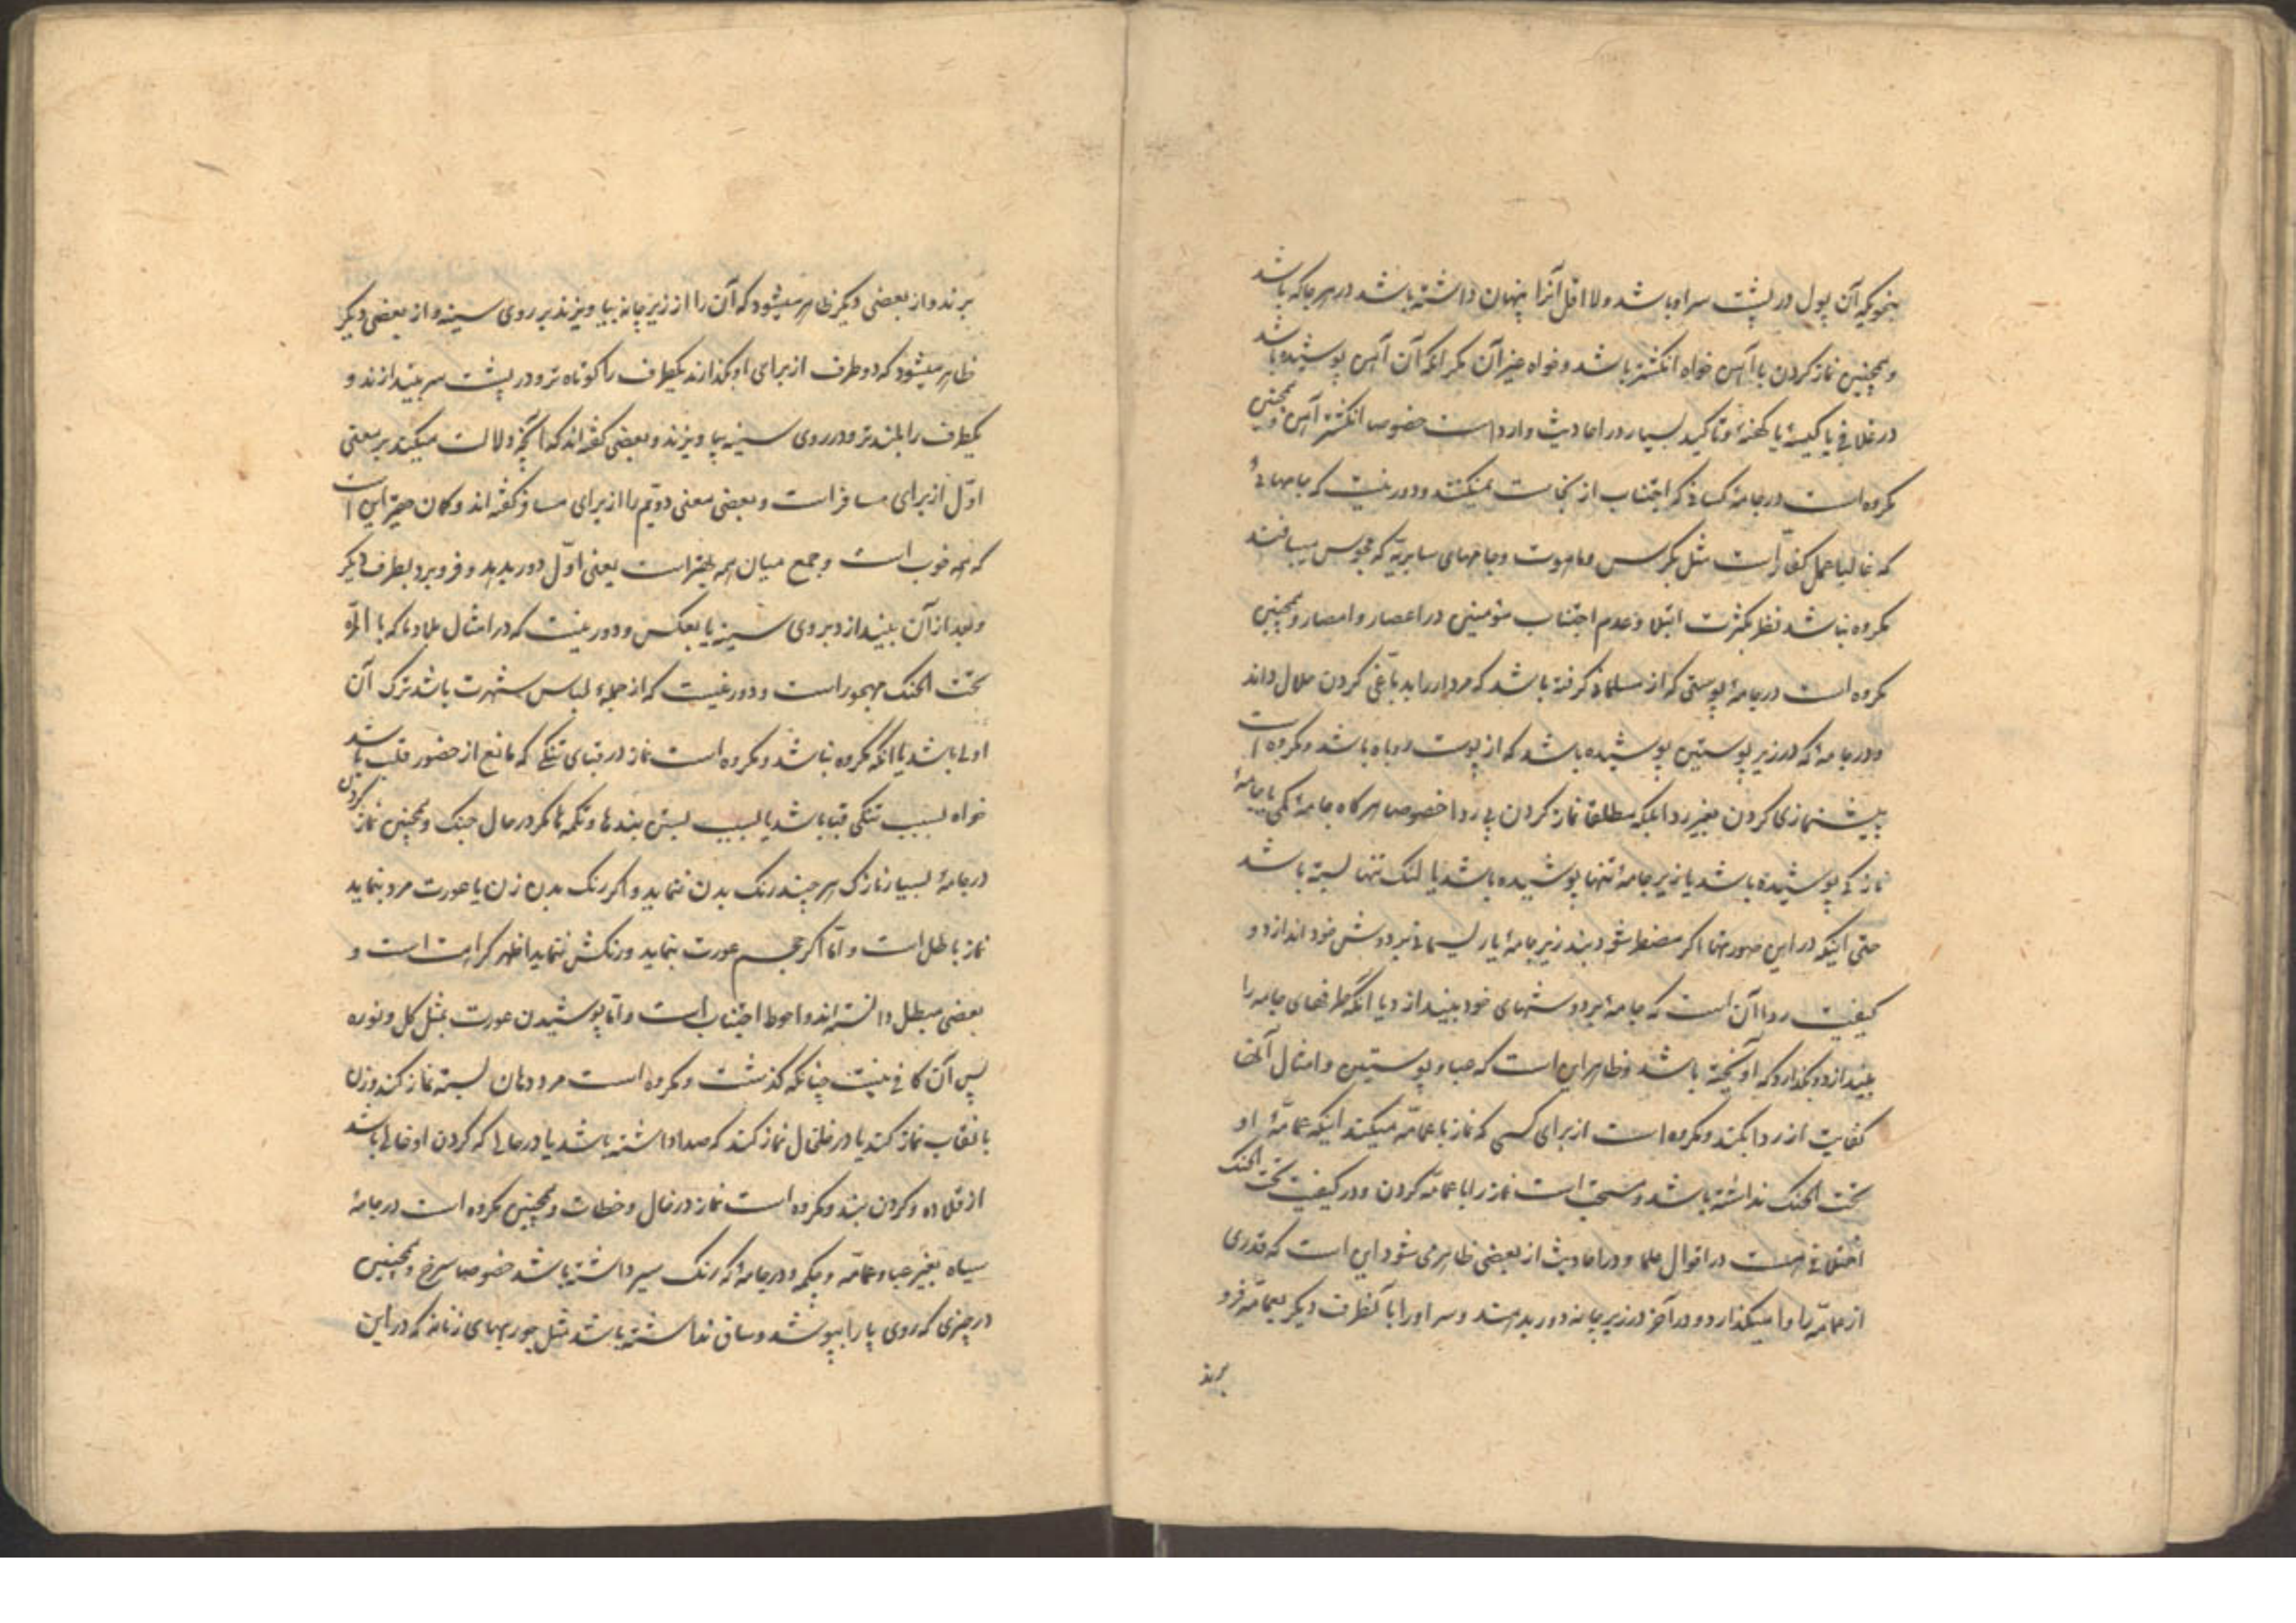 بنحویکه آن پول در پشت سر او باشد و لا اقل آنرا پنهان داشته باشد در هر جا که باشد
و همچنین نماز کردن با آهن خواه انکشتر باشد و خواه غیر آن مکر آنکه آن آهن پوشیده باشد
در غلافی یا کیسهٔ یا کهنهٔ و تاکید بسیار در احادیث وارد است خصوصا انکشتر آهن و همچنین
مکروه است در جامهٔ کسانی که اجتناب از نجاست نمیکنند و دور نیست که جامهائی
که غالبا عمل کفّار است مثل بکرس و ماهوت و جامهای سابریّه که مجوس میبافند
مکروه نباشد نظر بکثرت ابتلا و عدم اجتناب مؤمنین در اعصار و امصار و همچنین
مکروه است در جامهٔ پوستی که از مسلمانی کرفته باشد که مردار را بدبّاغی کردن حلال داند
و در جامهٔ که در زیر پوستین پوشیده باشد که از پوست روباه باشد و مکروه است
پیشنمازی کردن بغیر ردا بلکه مطلقا نماز کردن بی ردا خصوصا هر کاه جامهٔ تکی یا جامهٔ
نازکی پوشیده باشد یا زیر جامهٔ تنها پوشیده باشد یا لنک تنها بسته باشد
حتی اینکه در این صورتها اکر مضطر شود بند زیر جامهٔ یا ریسمانی بر دوش خود اندازد و
کیفیت ردا آن است که جامهٔ بر دوشهای خود بیندازد یا آنکه طرفهای جامه را
بیندازد و بکذارد که آویخته باشد و ظاهر این است که عبا و پوستین و امثال آنها
کفایت از ردا بکند و مکروه است از برای کسی که نماز با عمامّه میکند اینکه عمامّهٔ او
تحت الحنک نداشته باشد و مستحب است نماز را با عمامّه کردن و در کیفیت تحت الحنک
اختلافی هست در اقوال علما و در احادیث از بعضی ظاهر می شود این است که قدری
از عمامّه را وا میکذارد و در آخر در زیر چانه دور بدهند و سر او را باکطرف دیکر بعمامّه فرو
برند
برند و از بعضی دیکر ظاهر میشود که آن را از زیر چانه بیاویزند بر روی سینه و از بعضی دیکر
ظاهر میشود که دو طرف از برای او بکذارند یکطرف را کوتاه تر و در پشت سر بیندازند و
یکطرف را بلند تر و در روی سینه بیاویزند و بعضی کفته اند که آنچه دلالت میکند بر معنی
اوّل از برای مسافر است و بعضی معنی دویّم را از برای مسافر کفته اند و کمان حقیر این است
که همه خوب است و جمع میان همه بهتر است یعنی اوّل دور بدهد و فرو برد بطرف دیکر
و بعد از آن بیندازد بروی سینه یا بعکس و دور نیست که در امثال بلاد ما که بالمرّه
تحت الحنک مهجور است و دور نیست که از جملهٔ لباس شهرت باشد ترک آن
اولی باشد یا آنکه مکروه نباشد و مکروه است نماز در قبای تنکی که مانع از حضور قلب باشد
خواه بسبب تنکی قبا باشد یا بسبب بستن بندها و تکمه ها مکر در حال جنک و همچنین نماز کردن
در جامهٔ بسیار نازک هر چند رنک بدن ننماید و اکر رنک بدن زن یا عورت مرد بنماید
نماز باطل است و امّا اکر حجم عورت بنماید و رنکش ننماید اظهر کراهت است و
بعضی مبطل دانسته اند و احوط اجتناب است و امّا پوشیدن عورت بمثل کل و نوره
پس آن کافی نیست چنانکه کذشت و مکروه است مرد دهان بسته نماز کند و زن
با نقاب نماز کند یا در خلخال نماز کند که صدا داشته باشد یا در حالی که کردن او خالی باشد
از قلاده و کردن بند و مکروه است نماز در خال و خطات و همچنین مکروه است در جامهٔ
سیاه بغیر عبا و عمامّه و چکمه و در جامهٔ که رنک سیر داشته باشد خصوصا سرخ و همچنین
در چیزی که روی پا را بپوشد و ساق نداشته باشد مثل جوربهای زنانه که در این